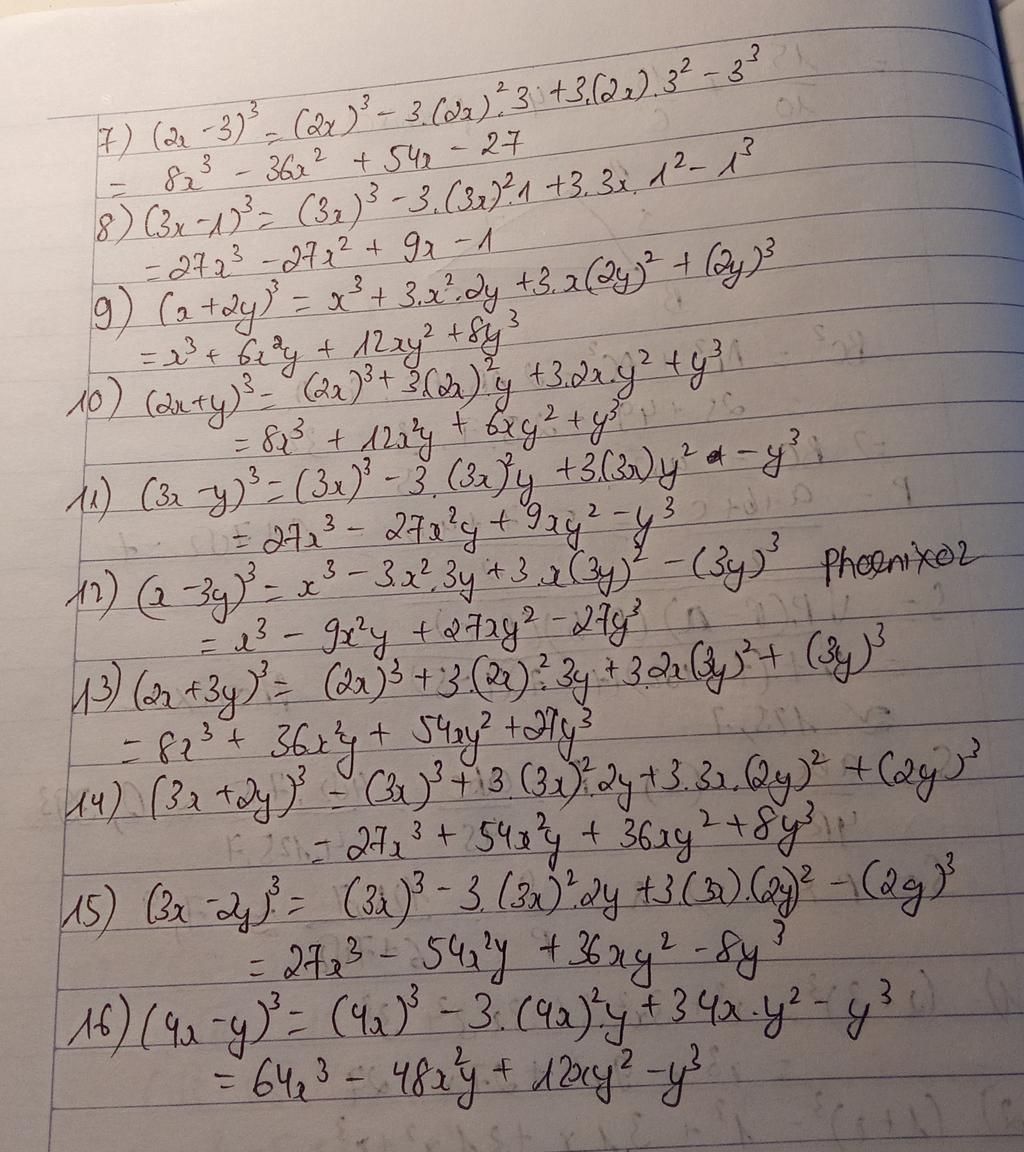 7) (2x - 3)³ = (2x)³ - 3.(2x)².3 + 3.(2x).3² - 3³
= 8x³ - 36x² + 54x - 27
8) (3x - 1)³ = (3x)³ - 3.(3x)².1 + 3.3x.1² - 1³
= 27x³ - 27x² + 9x - 1
9) (x + 2y)³ = x³ + 3.x².2y + 3.x(2y)² + (2y)³
= x³ + 6x²y + 12xy² + 8y³
10) (2x + y)³ = (2x)³ + 3.(2x)².y + 3.2x.y² + y³
= 8x³ + 12x²y + 6xy² + y³
11) (3x - y)³ = (3x)³ - 3.(3x)²y + 3.(3x)y² - y³
= 27x³ - 27x²y + 9xy² - y³
12) (x - 3y)³ = x³ - 3.x².3y + 3.x(3y)² - (3y)³ Phoenixo2
= x³ - 9x²y + 27xy² - 27y³
13) (2x + 3y)³ = (2x)³ + 3.(2x)².3y + 3.2x.(3y)² + (3y)³
= 8x³ + 36x²y + 54xy² + 27y³
14) (3x + 2y)³ = (3x)³ + 3.(3x)².2y + 3.3x.(2y)² + (2y)³
= 27x³ + 54x²y + 36xy² + 8y³
15) (3x - 2y)³ = (3x)³ - 3.(3x)².2y + 3(3x).(2y)² - (2y)³
= 27x³ - 54x²y + 36xy² - 8y³
16) (4x - y)³ = (4x)³ - 3.(4x)²y + 3 4x.y² - y³
= 64x³ - 48x²y + 12xy² - y³